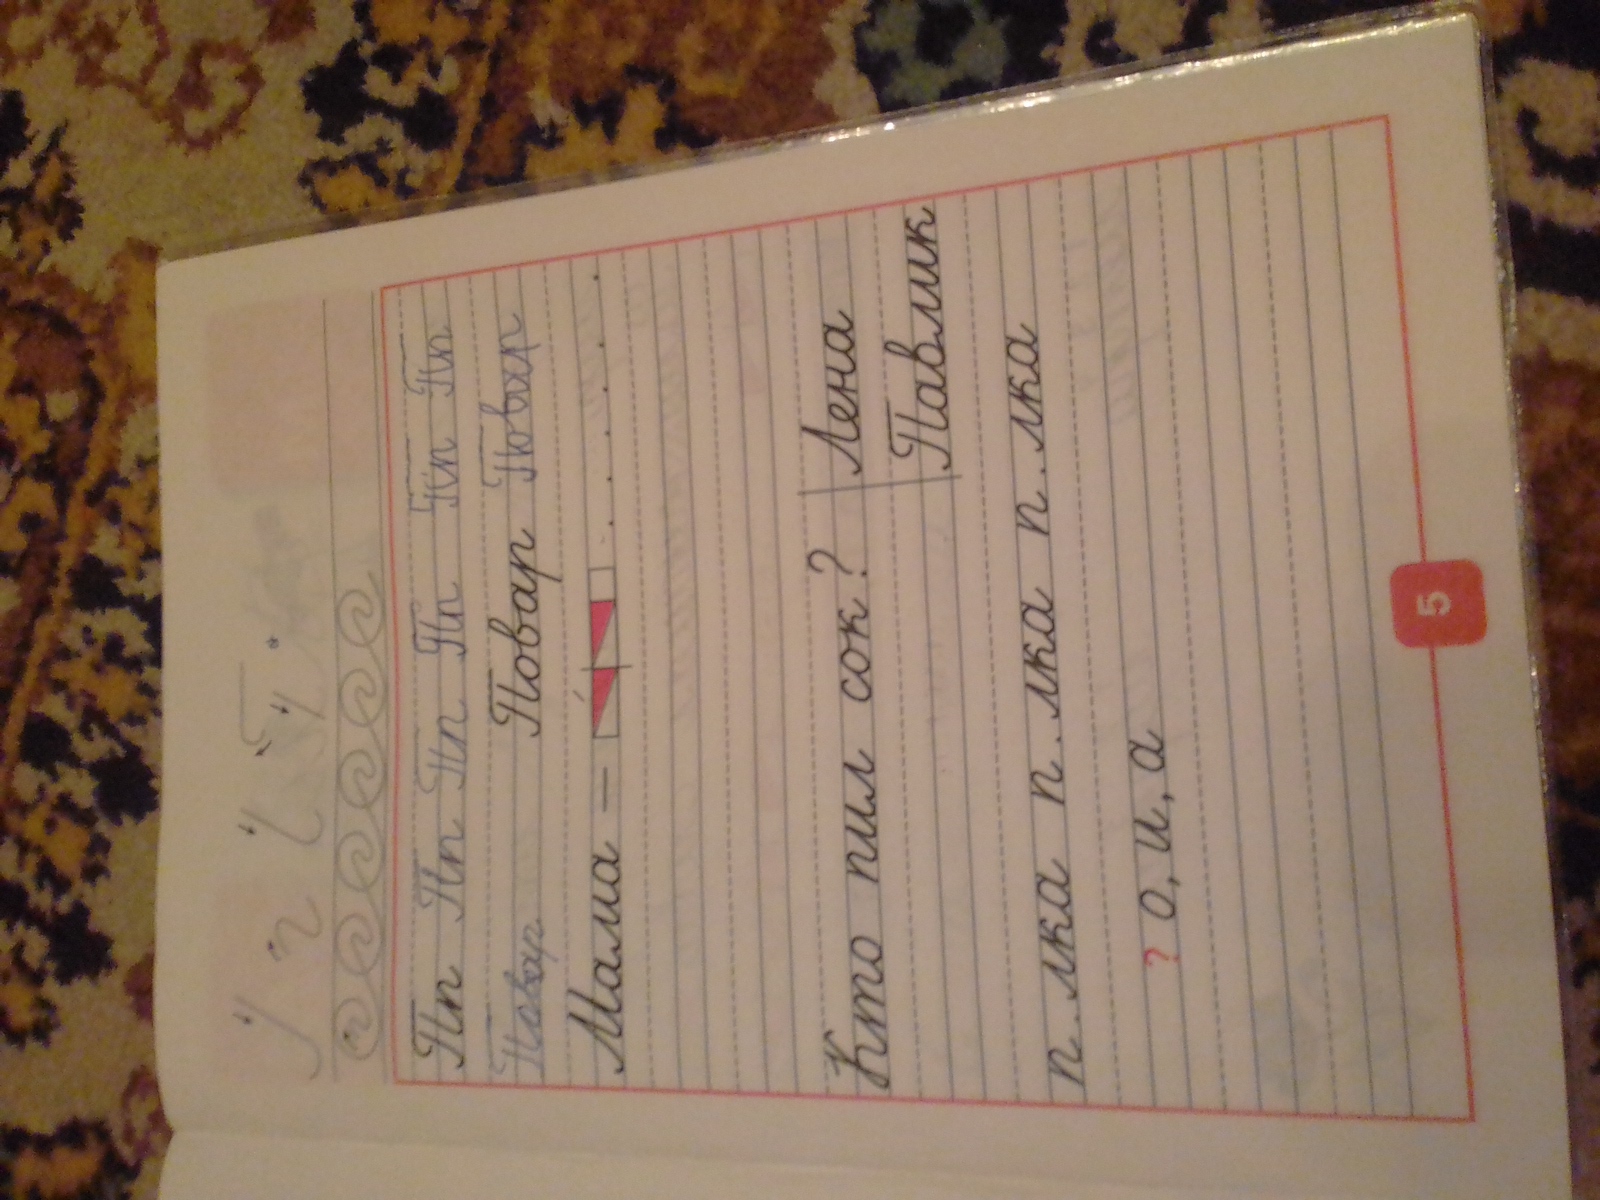 Пп Пп Пп Пп Пп Пп
Повар Повар Повар
Мама – . . . . . .
Кто пил сок? Лена
Павлик
п.лка п.лка п.лка
? о, и, а
5